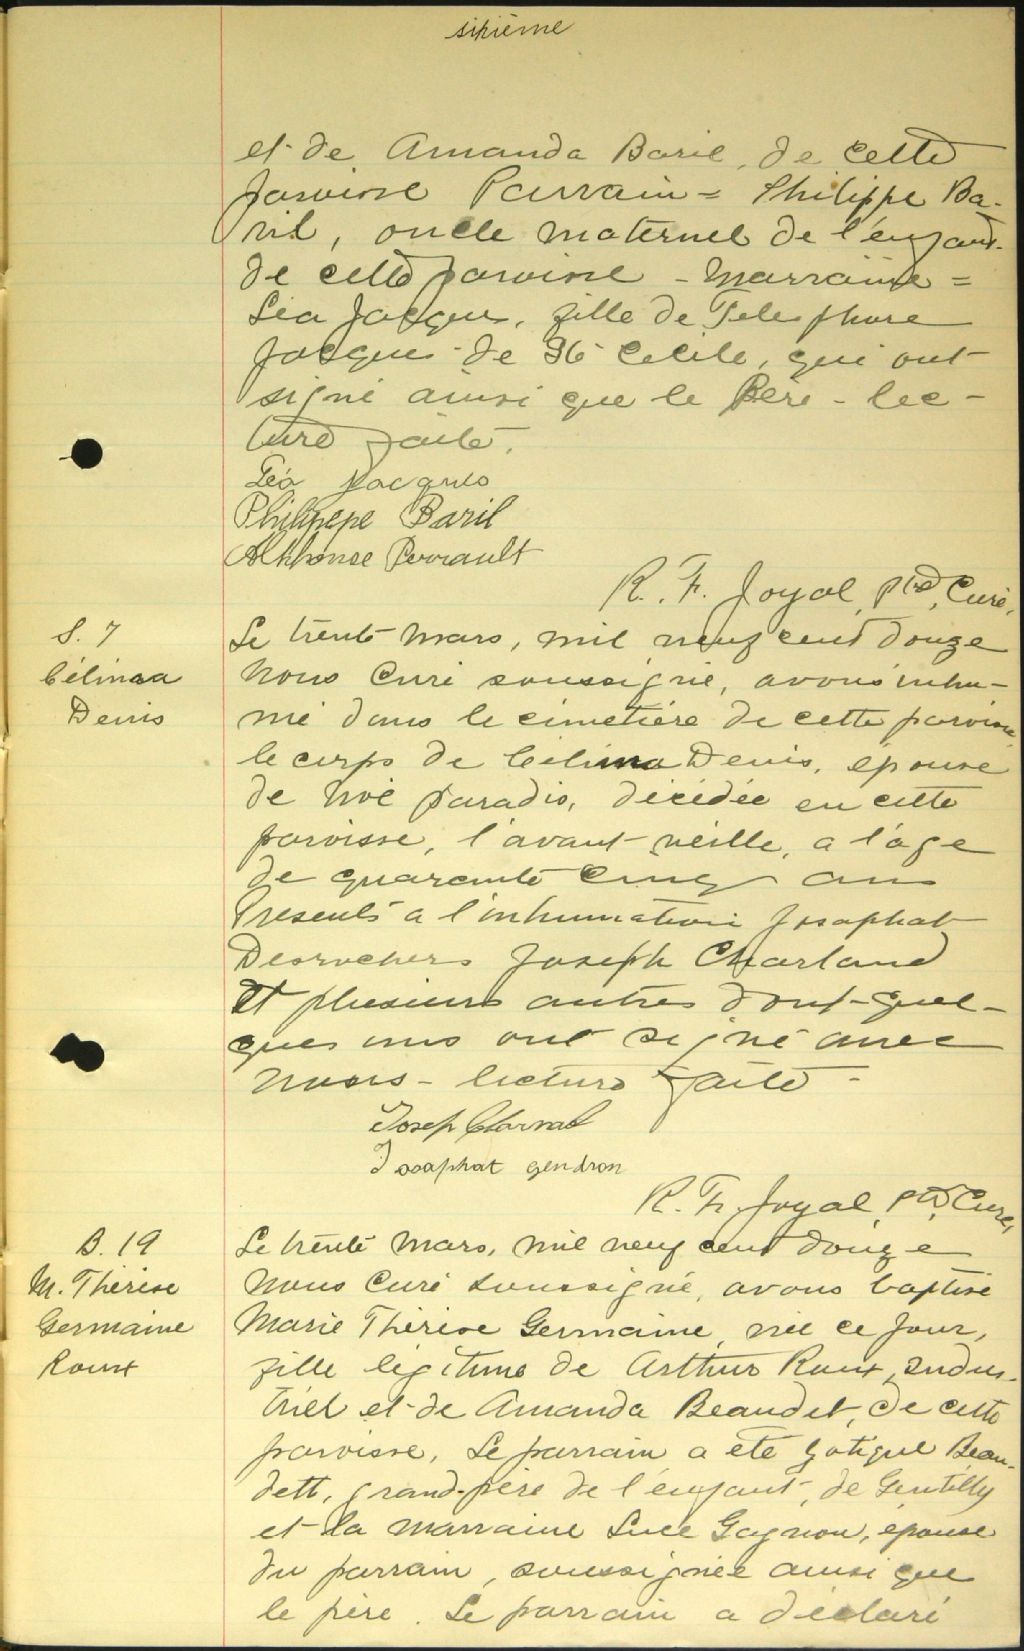 sixième
et de Amanda Baril, de cette
paroisse Parrain = Philippe Ba-
ril, oncle maternel de l'enfant
de cette paroisse - Marraine =
Léa Jacques, fille de Telesphore
Jacques de Ste Cécile, qui ont
signé ainsi que le Père - lec-
ture faite.
Léa Jacques
Philippe Baril
Alphonse Perrault
R. F. Joyal, Ptre, Curé,
S. 7
Célinaa
Denis
Le trente Mars, mil neuf cent douze
Nous Curé soussigné, avons inhu-
mé dans le cimetière de cette paroisse
le corps de Célina Denis, épouse
de Noé Paradis, décédée en cette
paroisse, l'avant veille, a l'age
de quarante cinq ans
Presents a l'inhumation Josaphat
Desrochers Joseph Charland
et plusieurs autres dont quel-
ques uns ont signé avec
nous - lecture faite -
Josep
Josaphat gendron
R. F. Joyal, Ptre, Curé,
B. 19
M. Thérèse
Germaine
Roux
Le trente Mars, mil neuf cent douze
Nous Curé soussigné, avons baptisé
Marie Thérèse Germaine, née ce jour,
fille légitime de Arthur Roux, Indus-
triel et de Amanda Beaudet, de cette
paroisse, Le parrain a été Beau-
dett, grand-père de l'enfant, de Gentilly
et la marraine Luce Gagnon, épouse
du parrain, soussignée ainsi que
le père. Le parrain a déclaré